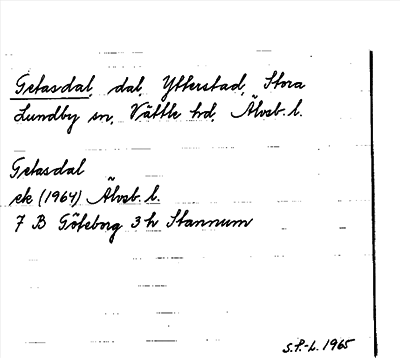 Getasdal, dal, Ytterstad, Stora
Lundby sn, Vättle hd, Älvsb. l.
Getasdal
ek (1964) Älvsb. l.
7 B Göteborg 3 h Stannum
S.P.-L. 1965